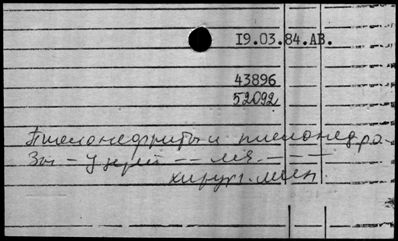 I9.03.84.АВ.
43896
52092
Пиелонефриты и пиелонефро
зы – У детей –– леч. –––
хирург. леч.